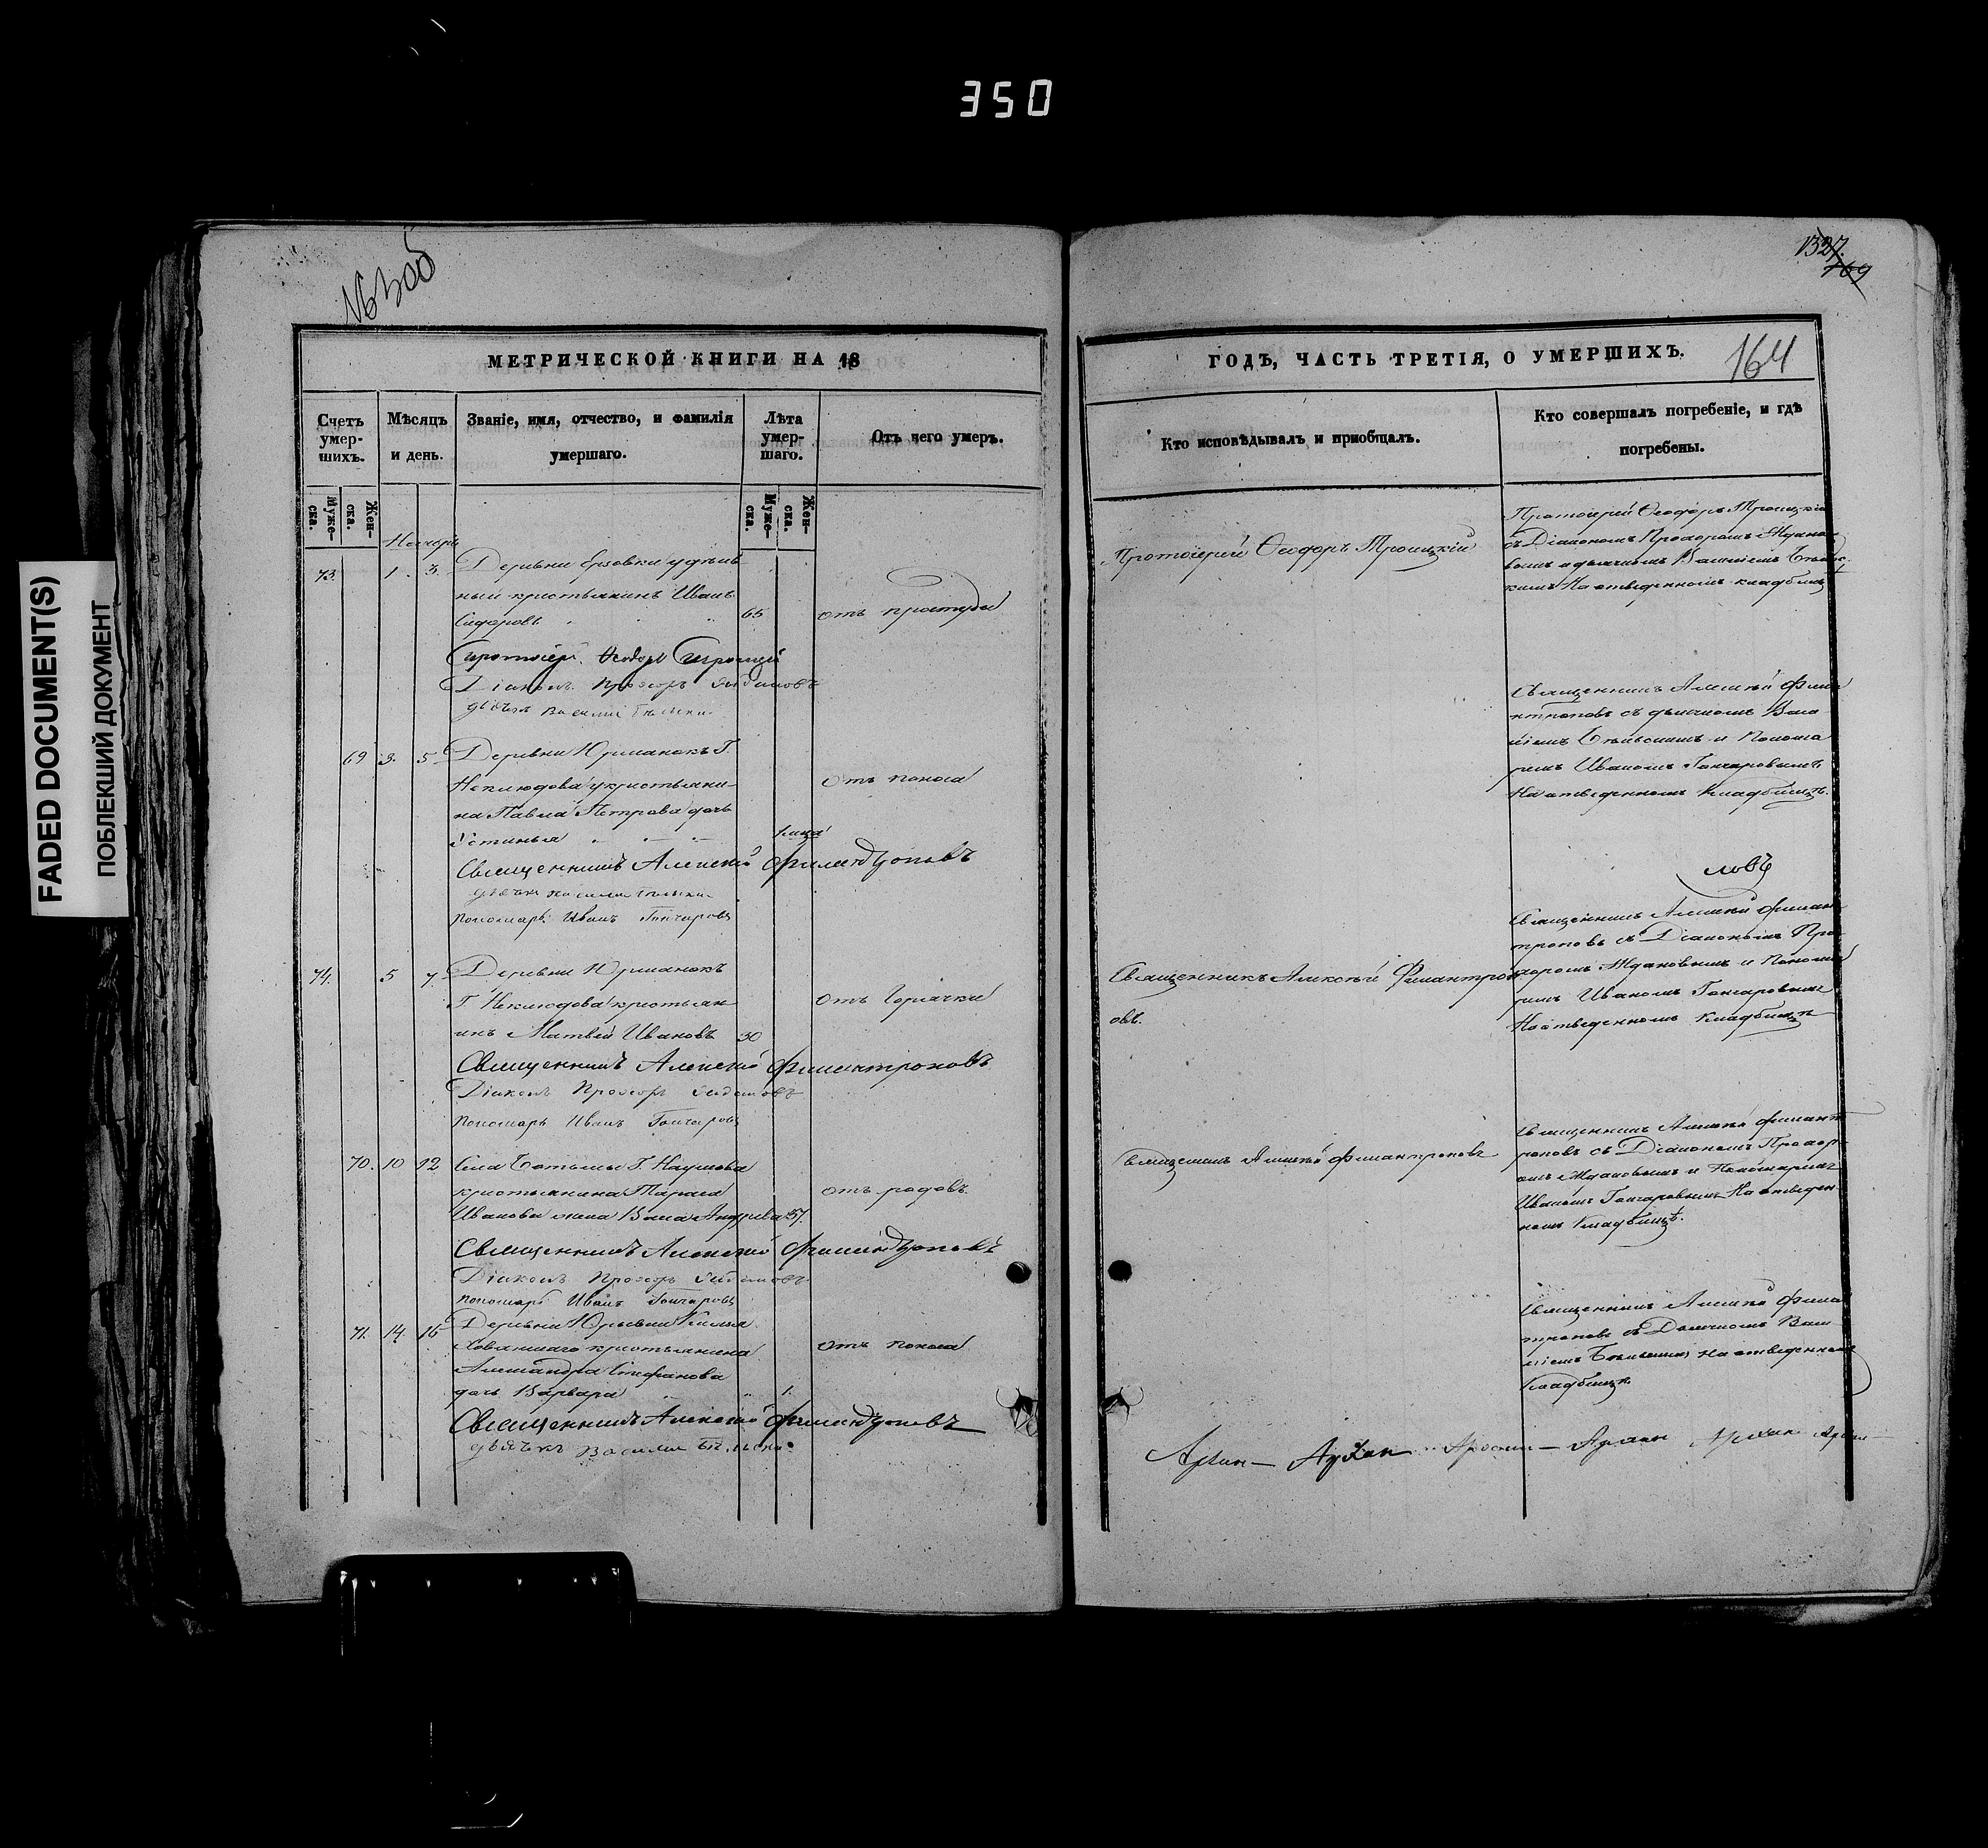 350
FADED DOCUMENT(S)
ПОБЛЕКШИЙ ДОКУМЕНТ
1327.
169
164
МЕТРИЧЕСКОЙ КНИГИ НА 18
Счетъ умер-шихъ.
Мѣсяцъ и день.
Званіе, имя, отчество, и фамилія умершаго.
Лѣта умер-шаго.
Отъ чего умеръ.
Муже-ска.
Жен-ска.
Муже-ска.
Жен-ска.
Ноябрь
73. 1. 3. Деревни Ерзовки удѣль
ный крестьянинъ Иванъ
Сидоровъ 65 отъ простуды
Протоіерей Ѳеодоръ Троицкій
Діаконъ Прохоръ Ждановъ
дьячекъ Василій
69 3. 5 Деревни Юрманокъ Г.
Неклюдова крестьяни-
на Павла Петрова дочь отъ поноса
Устинья
Священникъ Алексѣй Филантроповъ
дьячекъ Василій
пономарь Иванъ Гончаровъ
74. 5 7 Деревни Юрманокъ
Г. Неклюдова крестьян
инъ Матвей Ивановъ 30 отъ горячки
Священникъ Алексѣй Филантроповъ
Діаконъ Прохоръ Ждановъ
пономарь Иванъ Гончаровъ
70. 10 12 Села Ботьмы Г. Наумова
крестьянина Тараса отъ родовъ.
Иванова жена Андреева 37.
Священникъ Алексѣй Филантроповъ
Діаконъ Прохоръ Ждановъ
пономарь Иванъ Гончаровъ
71. 14. 16 Деревни Юрьевки Князя
Хованскаго крестьянина отъ поноса
Александра Стефанова
дочь Варвара 1.
Священникъ Алексѣй Филантроповъ
дьячекъ Василій
ГОДЪ, ЧАСТЬ ТРЕТІЯ, О УМЕРШИХЪ.
Кто исповѣдывалъ и пріобщалъ.
Кто совершалъ погребеніе, и гдѣ погребены.
Протоіерей Ѳеодоръ Троицкій
Протоіерей Ѳеодоръ Троицкій
съ Діакономъ Прохоромъ Ждано
вымъ и дьячкомъ Василіемъ
На отведенномъ кладбищѣ
Священникъ Алексѣй Филан
троповъ съ дьячкомъ Васи
ліемъ и Понома
ремъ Иваномъ Гончаровымъ
На отведенномъ кладбищѣ.
Священникъ Алексѣй Филантроп
овъ.
Священникъ Алексѣй Филан
троповъ съ Діакономъ Про
хоромъ Ждановымъ и Понома
ремъ Иваномъ Гончаровымъ
На отведенномъ кладбищѣ
Священникъ Алексѣй Филантроповъ
Священникъ Алексѣй Филант
роповъ съ Діакономъ Прохор
омъ Ждановымъ и Пономаремъ
Иваномъ Гончаровымъ На отведен
номъ кладбищѣ.
Священникъ Алексѣй Филан
троповъ съ Дьячкомъ Васи
ліемъ на отведенномъ
кладбищѣ